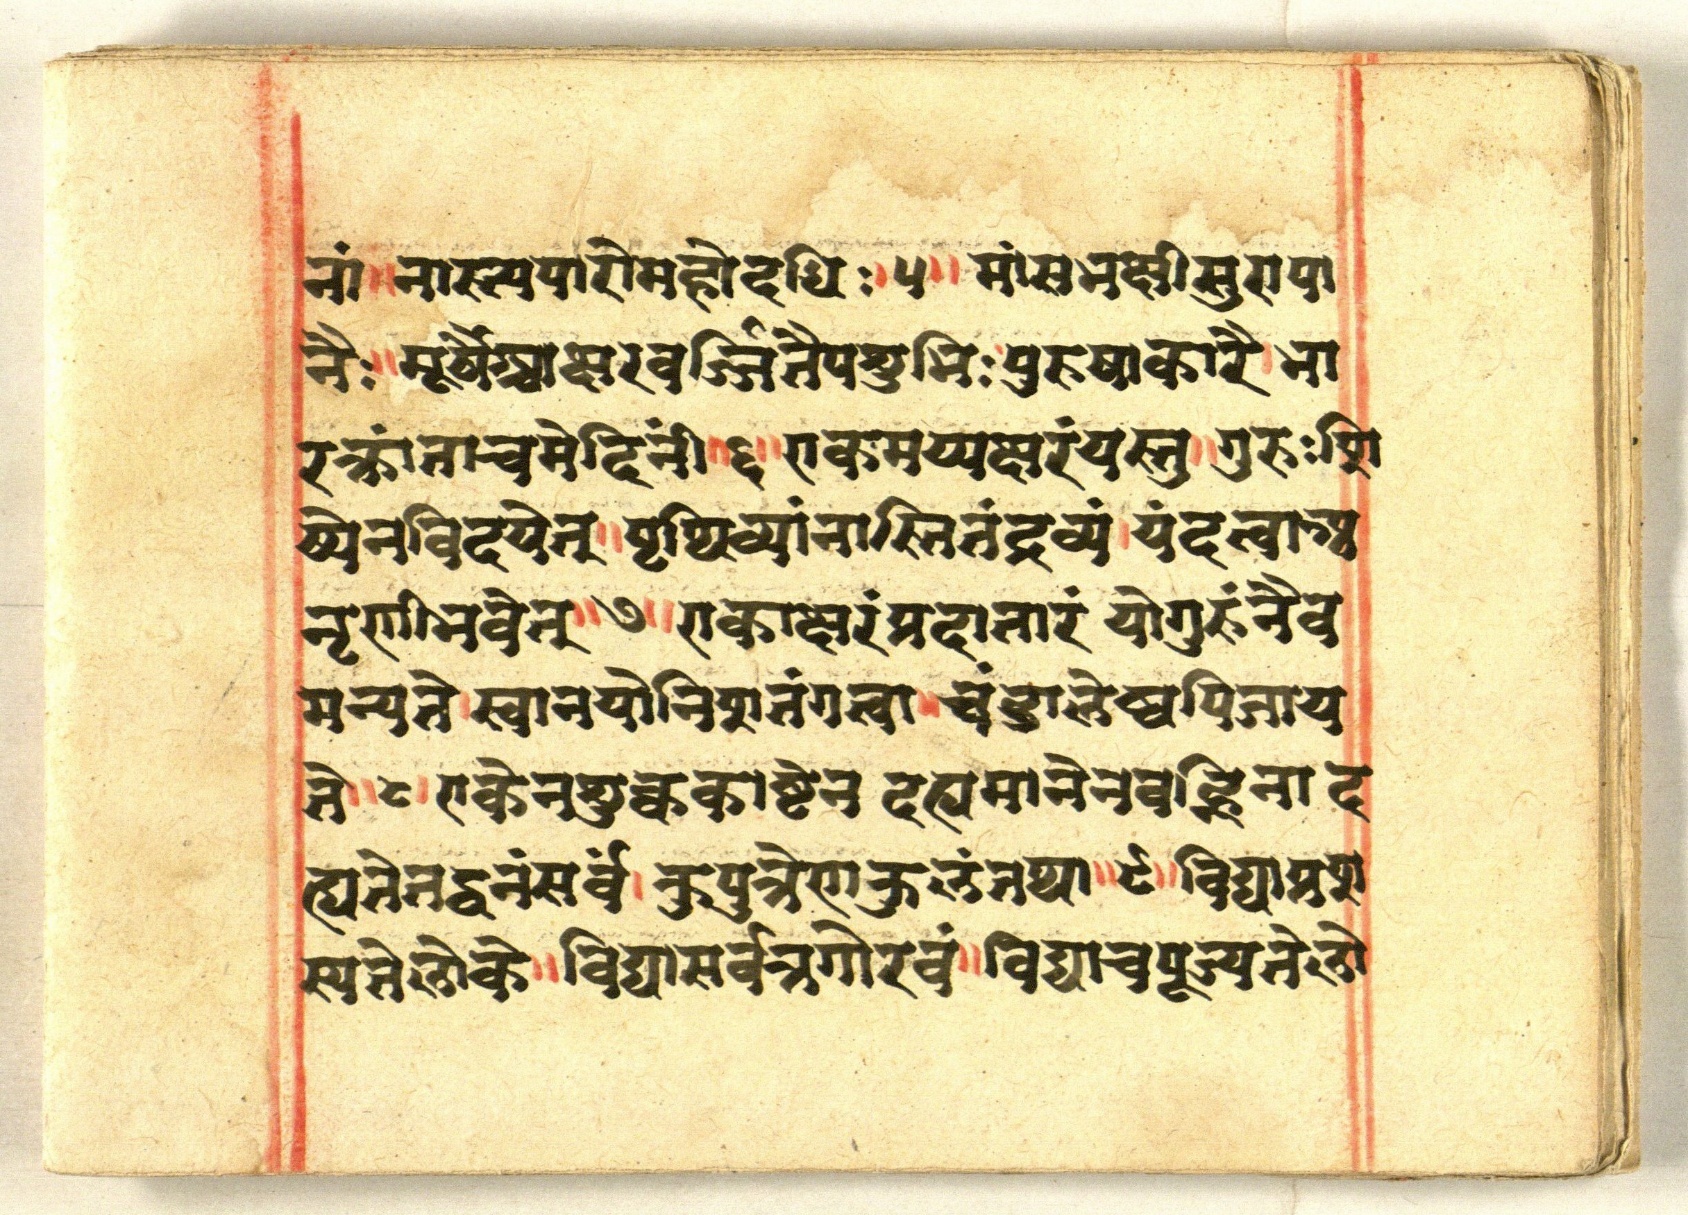 नां ॥ नास्त्यपारोमहोदधिः ॥ ५ ॥ मांसभक्षीसुरापा
नैः ॥ मूर्खैश्चाक्षरवर्ज्जितैपशुभिः पुरुषाकारै । भा
रक्रांताचमेदिनीं ॥ ६ ॥ एकमप्यक्षरंयस्तु ॥ गुरुःशि
ष्येनविदयेत् ॥ पृथिव्यांनास्तितंद्रव्यं । यंदत्वाऽप्य
नृणीभवेत् ॥ ७ ॥ एकाक्षरंप्रदातारं योगुरुंनैव
मन्यते । स्वानयोनिशतंगत्वा ॥ चंडालेष्वपिजाय
ते ॥ ८ ॥ एकेनशुष्ककाष्टेन दह्यमानेनेवह्निना द
ह्यतेतद्वनंसर्वं । कुपुत्रेणकुलंतथा ॥ ९ ॥ विद्याप्रश
स्यतेलोके ॥ विद्यासर्वत्रगोरवं ॥ विद्याचपूज्यतेलो